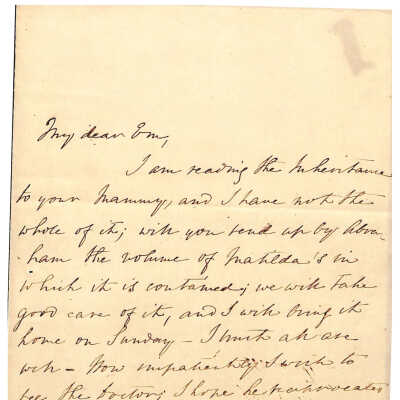 My dear Em,
I am reading the Inheritance
to your Mammy, and I have not the
whole of it; will you send up by Abra-
ham the volume of Matilda's in
which it is contained; we will take
good care of it, and I will bring it
home on Sunday - I trust all are
well - How impatiently I wish to
see the Doctor; I hope he reciprocates